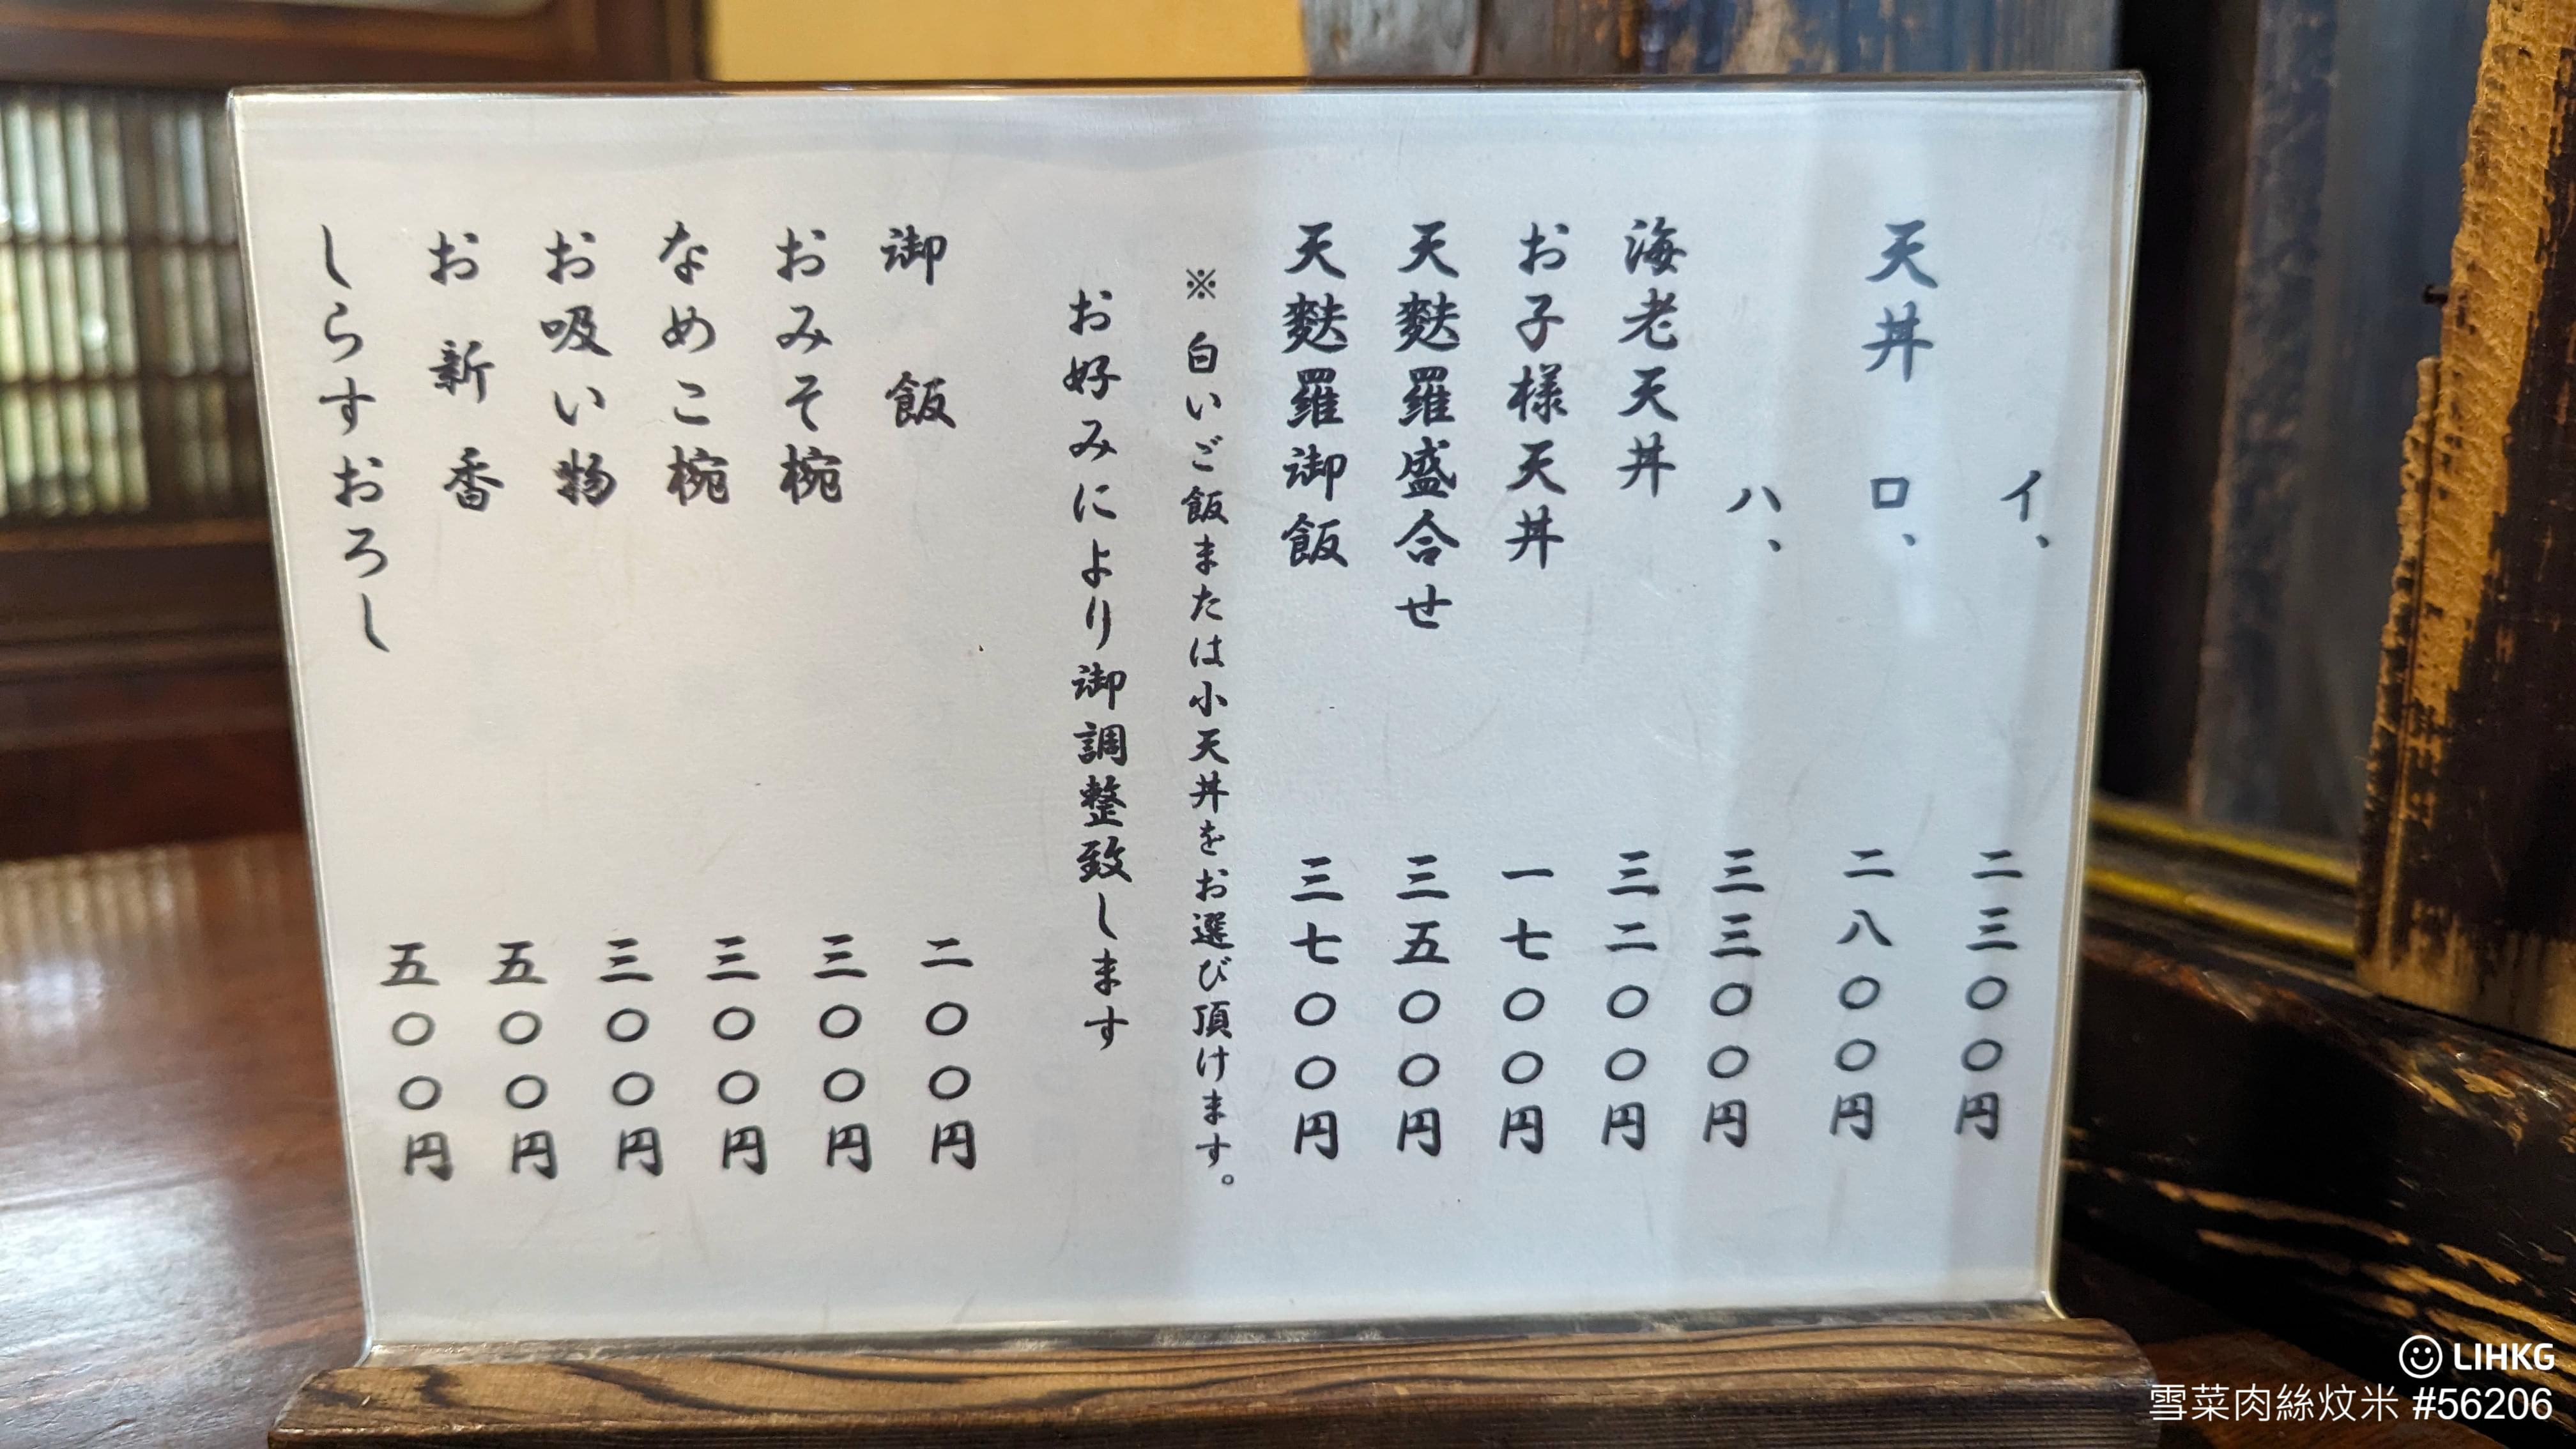 イ、 二三〇〇円
天丼 ロ、 二八〇〇円
ハ、 三三〇〇円
海老天丼 三二〇〇円
お子様天丼 一七〇〇円
天麩羅盛合せ 三五〇〇円
天麩羅御飯 三七〇〇円
※白いご飯または小天丼をお選び頂けます。
お好みにより御調整致します
御飯 二〇〇円
おみそ椀 三〇〇円
なめこ椀 三〇〇円
お吸い物 三〇〇円
お新香 五〇〇円
しらすおろし 五〇〇円
LIHKG
雪菜肉絲炆米 #56206